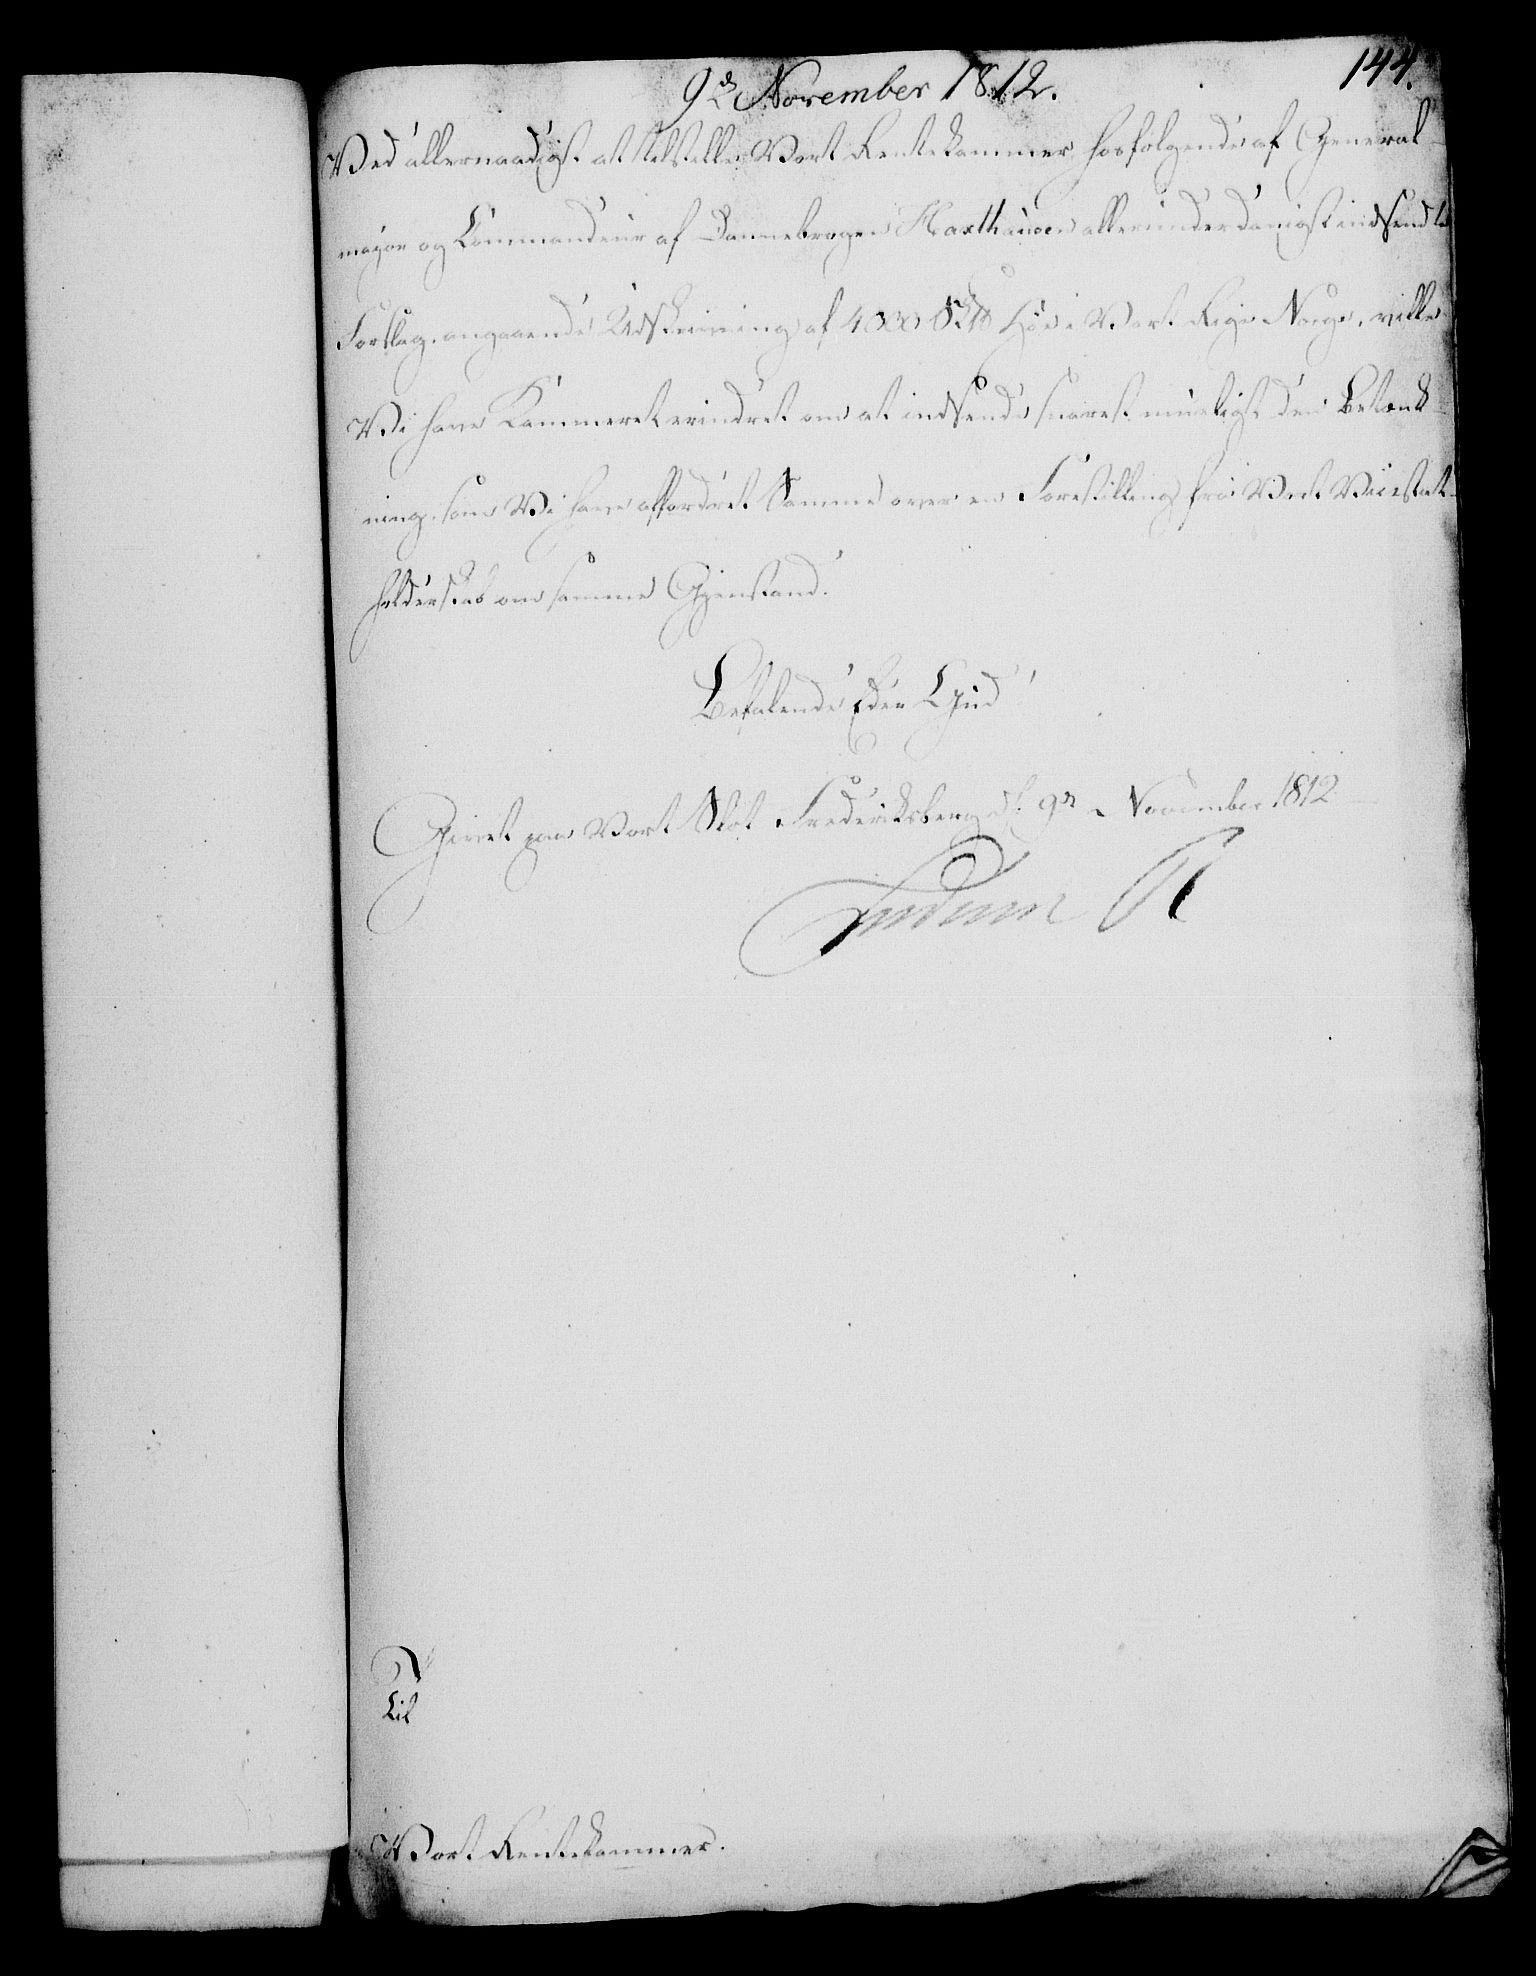 144.
9de November 1812.
Ved allernaadigst at tilstille Vort Rentekammer hosfølgende af General-
major og Commandeur af Dannebrogen Haxthausen allerunderdanigst indsendte
Forslag, angaaende Udskrivning af 4000 Sk℔ Høe i Vort Rige Norge, ville
Vi have Kammeret erindret om at indsende snarest mueligt den Betænk-
ning, som Vi have affordret Samme over en Forestilling fra Vort Vicestat-
holderskab om samme Gjenstand.
Befalende Eder Gud
Givet paa Vort Slot Frederiksberg d. 9de November 1812
Frederik R
Til
Vort Rentekammer.